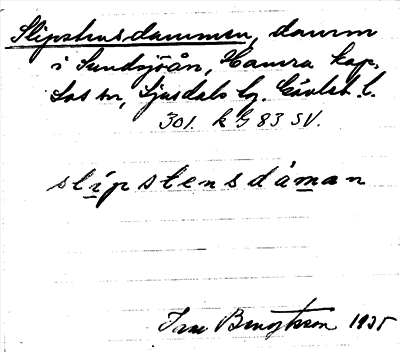 Slipstensdammen, damm
i Sundsjöån, Hamra kap.
Los sn, Ljusdals tg. Gävleb. l.
301. k G 83 SV.
slipstensdåman
Bengtsson 1935